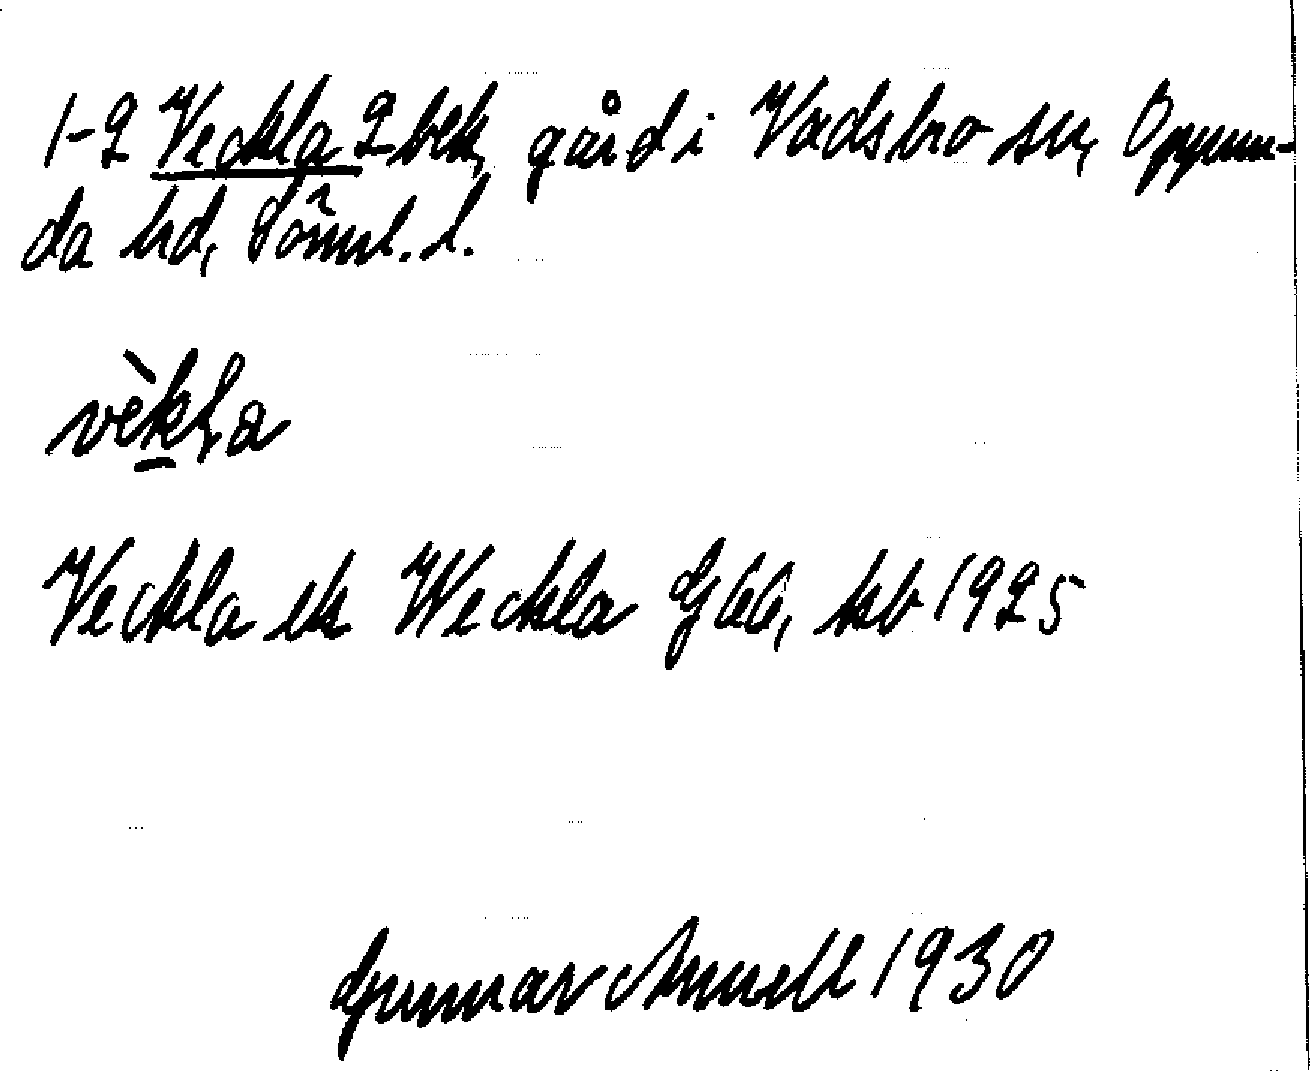 1-2 Veckla 2 bek, gård i Vadsbro sn, Oppun-
da hd, Söml. l.
vèkla
Veckla ek Weckla G 66, kb 1925
Gunnar Annell 1930